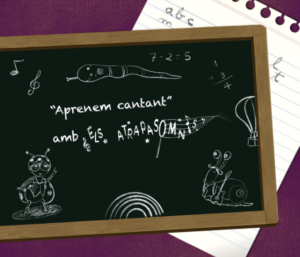 a b c
m
7 - 2 = 5
1
+ 3
4
l
t
"Aprenem cantant"
amb ELS ATRAPASOMNIS